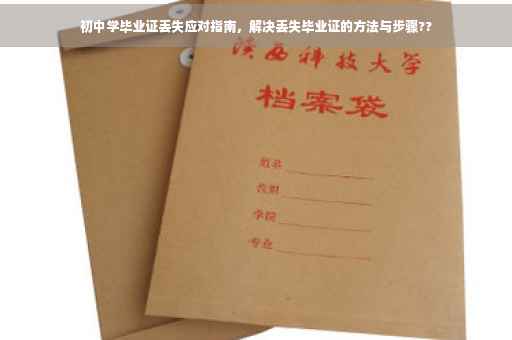 初中学毕业证丢失应对指南，解决丢失毕业证的方法与步骤??
陕西科技大学
档案袋
姓名
学院
专业